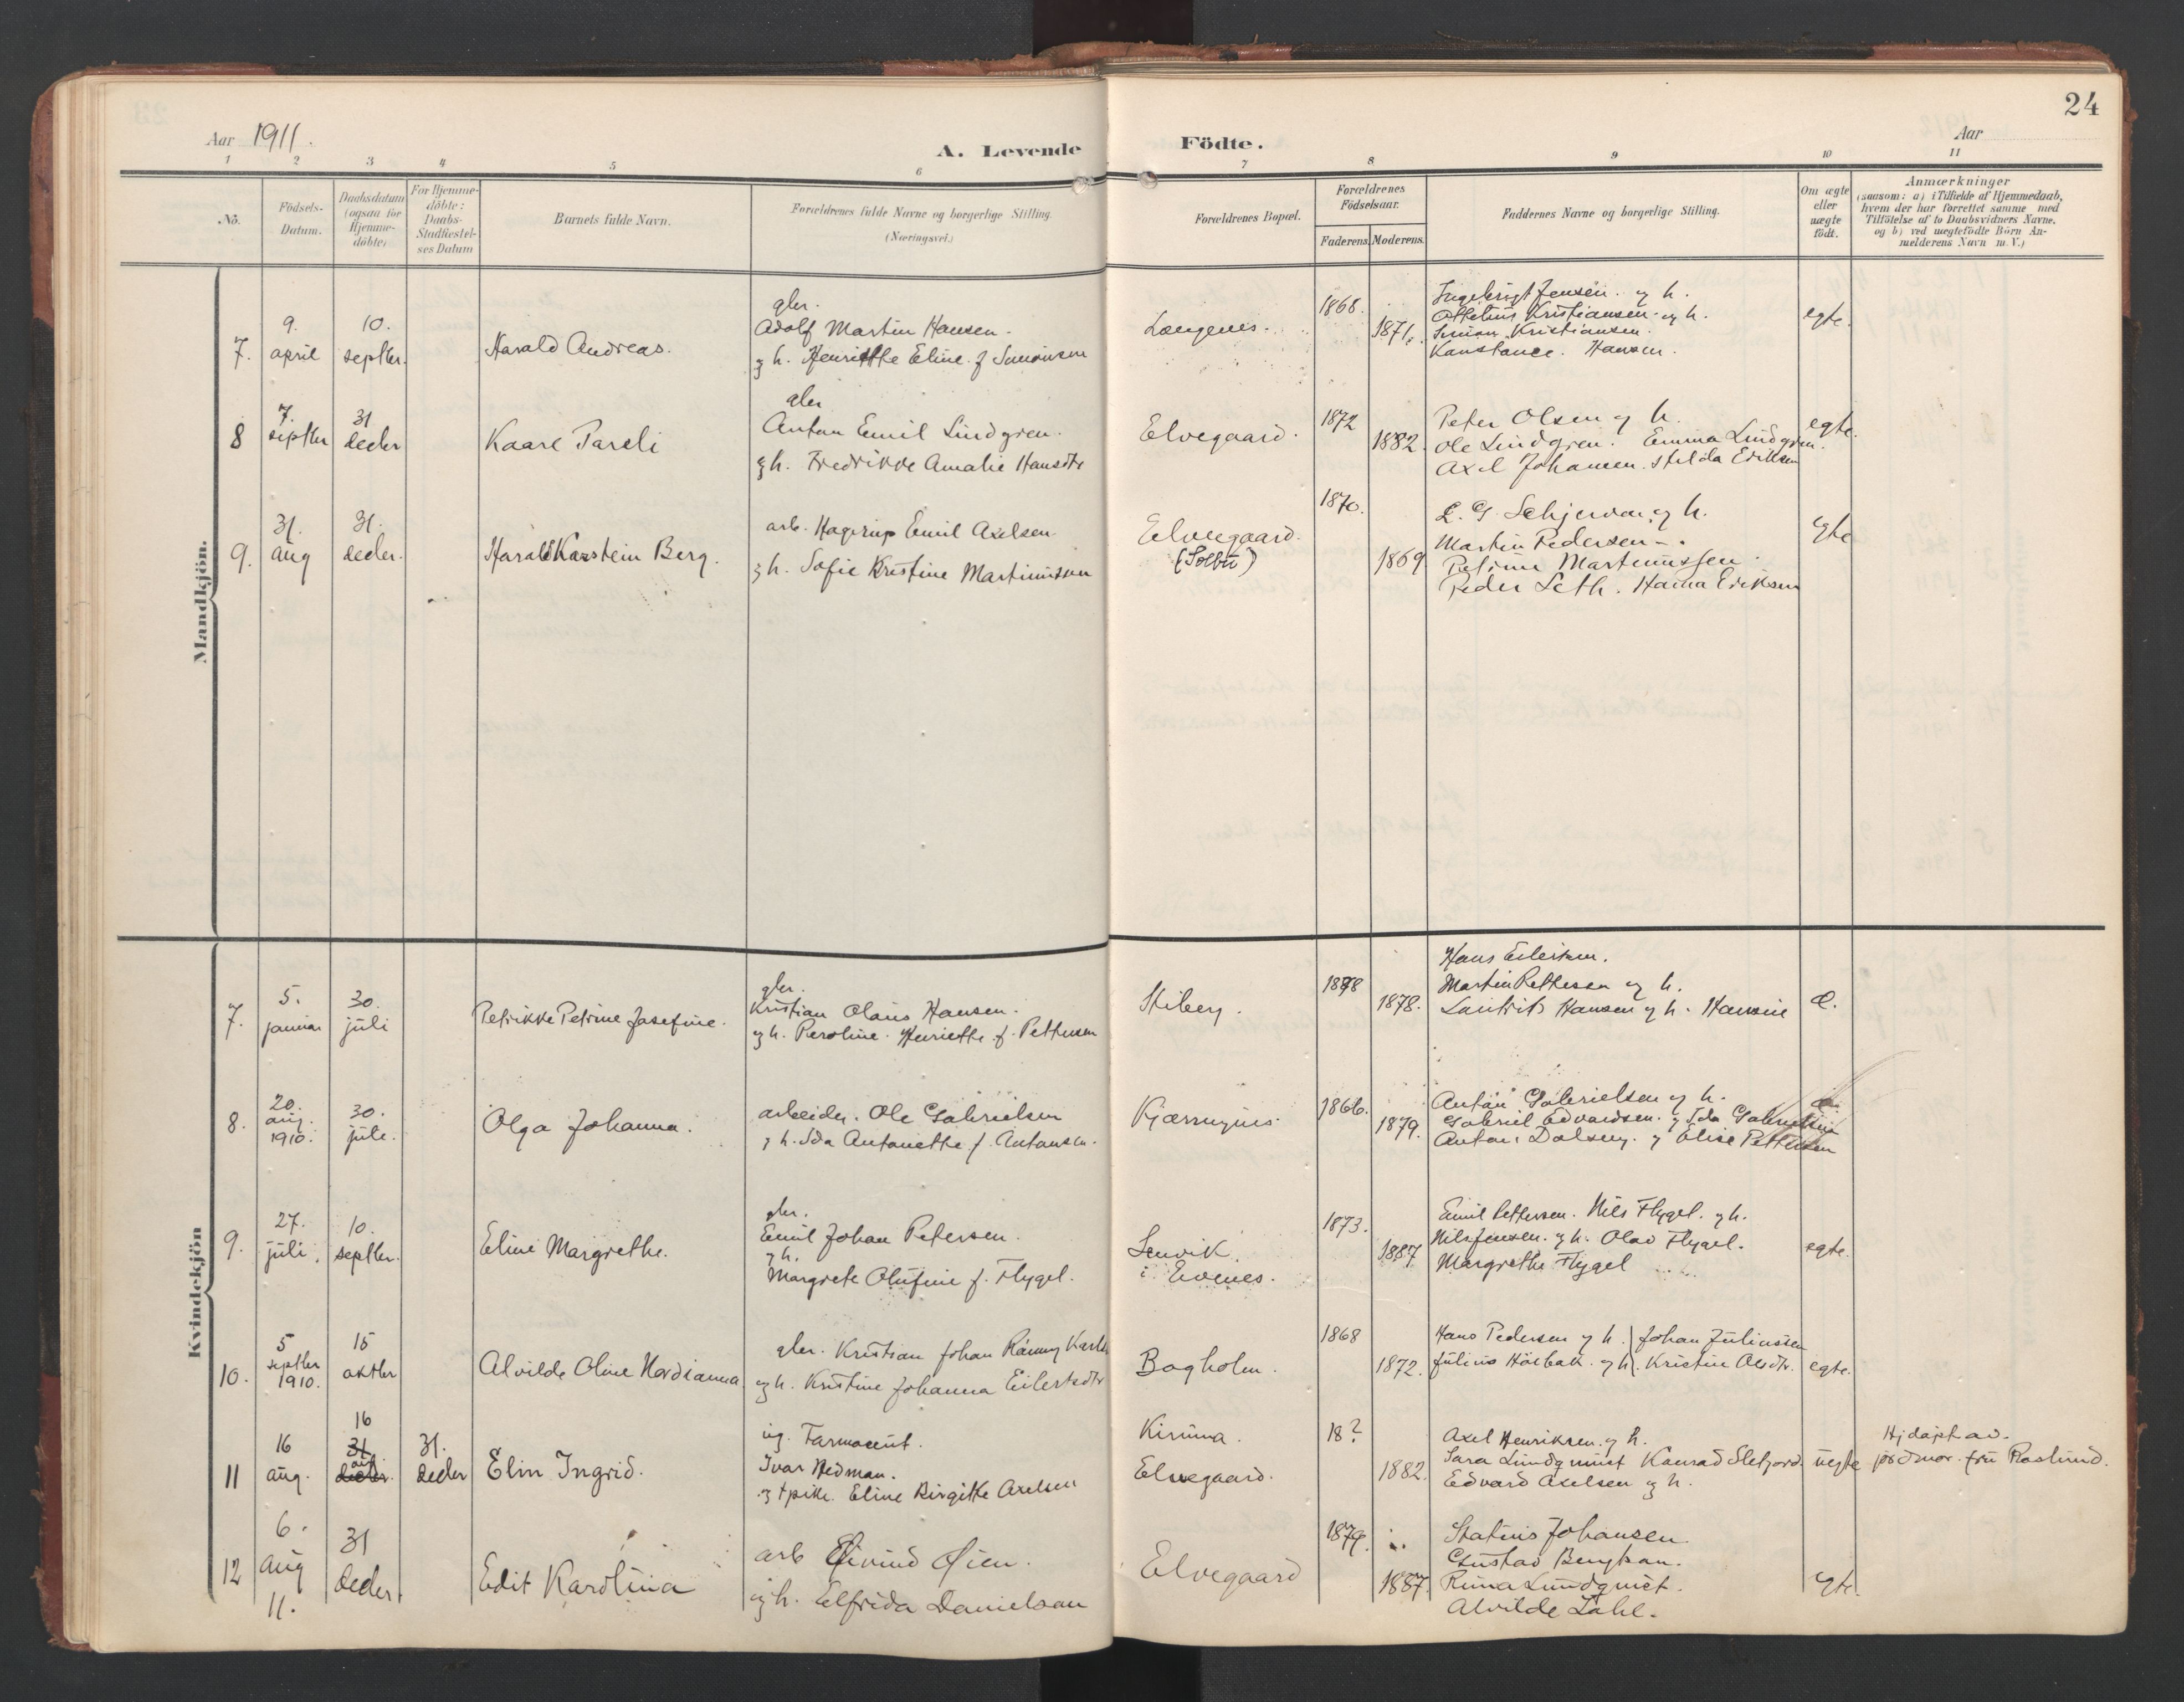 24
Aar 1911.
A. Levende Födte.
Aar
1 2 3 4 5 6 7 8 9 10 11
No.
Födsels-
Datum.
Daabsdatum
(ogsaa for
Hjemme-
döbte)
For Hjemme-
döbte:
Daabs-
Stadfæstel-
ses Datum
Barnets fulde Navn.
Forældrenes fulde Navne og borgerlige Stilling.
(Næringsvei.)
Forældrenes Bopæl.
Forældrenes
Födselsaar.
Faderens. Moderens.
Faddernes Navne og borgerlige Stilling.
Om ægte
eller
uægte
födt.
Anmærkninger
(saasom: a) i Tilfælde af Hjemmedaab,
hvem der har forrettet samme med
Tilföielse af to Daabsvidners Navne,
og b) ved uægtefödte Börn An-
melderens Navn m. V.)
Mandkjön.
7.
9.
april
10.
septbr.
Harald Andreas.
gbr.
Adolf Martin Hansen.
og h. Henriette Eline f Simonsen
Længenes.
1868.
1871.
Ingebrigt Jensen. og h.
Ottelius Kristiansen og h.
Simon Kristiansen.
Konstance. Hansen.
egte.
8
7.
septbr
31
decbr
Kaare Pareli
gbr
Anton Emil Lindgren.
og h. Fredrikke Amalie Hansdtr
Elvegaard.
1872
1882.
Peter Olsen og h.
Ole Lindgren. Emma Lindgren.
Axel Johansen. Hilda Eriksen
egte.
9.
31.
aug
31.
decbr.
Harald Karstein Berg.
arb. Hagerup Emil Axelsen
og h. Sofie Kristine Martinussen
Elvegaard.
(Solbu)
1870.
1869
L. G. Schjervan og h.
Martin Pedersen - .
Petrine Martinussen
Peder Seth. Hanna Eriksen
egte
Kvindekjön
7.
5.
januar
30.
juli
Petrikke Petrine Josefine.
gbr.
Kristian Olaus Hansen.
og h. Peroline Henriette f. Pettersen
Stiberg.
1878
1878.
Hans Eilertsen.
Martin Pettersen og h.
Lauritz Hansen og h. Hansine
e.
8.
20.
aug.
1910.
30.
juli.
Olga Johanna.
arbeider. Ole Gabrielsen
og h. Ida Antonette f. Antonsen.
1866.
1879.
Anton Gabrielsen og h.
Gabriel Edvardsen. og Ida Gabrielsen
Anton Dalseng. og Elise Pettersen
e.
9.
27.
juli.
10.
septbr.
Eline Margrethe.
gbr.
Emil Johan Petersen.
og h.
Margrete Olufine f. Flygel.
Lenvik.
i Evenes.
1873.
1887
Emil Pettersen. Nils Flygel. og h.
Nils Jensen. og h. Olav Flygel.
Margrethe Flygel
egte.
10.
5
septbr
1910.
15
oktbr
Alvilde Oline Nordianna
gbr. Kristian Johan
og h. Kristine Johanna Eilertsdtr
Bogholm.
1868
1872.
Hans Pedersen og h. Johan Juliussen
Julius Holbak. og h. Kristine Olsdtr.
egte.
11
16
aug.
16
31
aug.
decbr.
31.
decbr
Elin Ingrid.
ug. Farmaceut.
Ivar Hedman.
og tpike. Eline Birgitte Axelsen
Kiruna.
Elvegaard.
18?
1882.
Axel Henriksen og h.
Sara Lundquist Konrad Sletjord
Edvard Axelsen og h.
uegte
Hjdöpt av.
jordmor. fru Roslund.
12
6.
aug
11.
31
decbr.
Edit Karolina
arb Eivind Öien.
og h. Elfrida Danielsen
Elvegaard
1879.
1887.
Statius Johansen
Gustav Bengtson.
Runa Lundquist.
Alvilde Dahl.
egte.